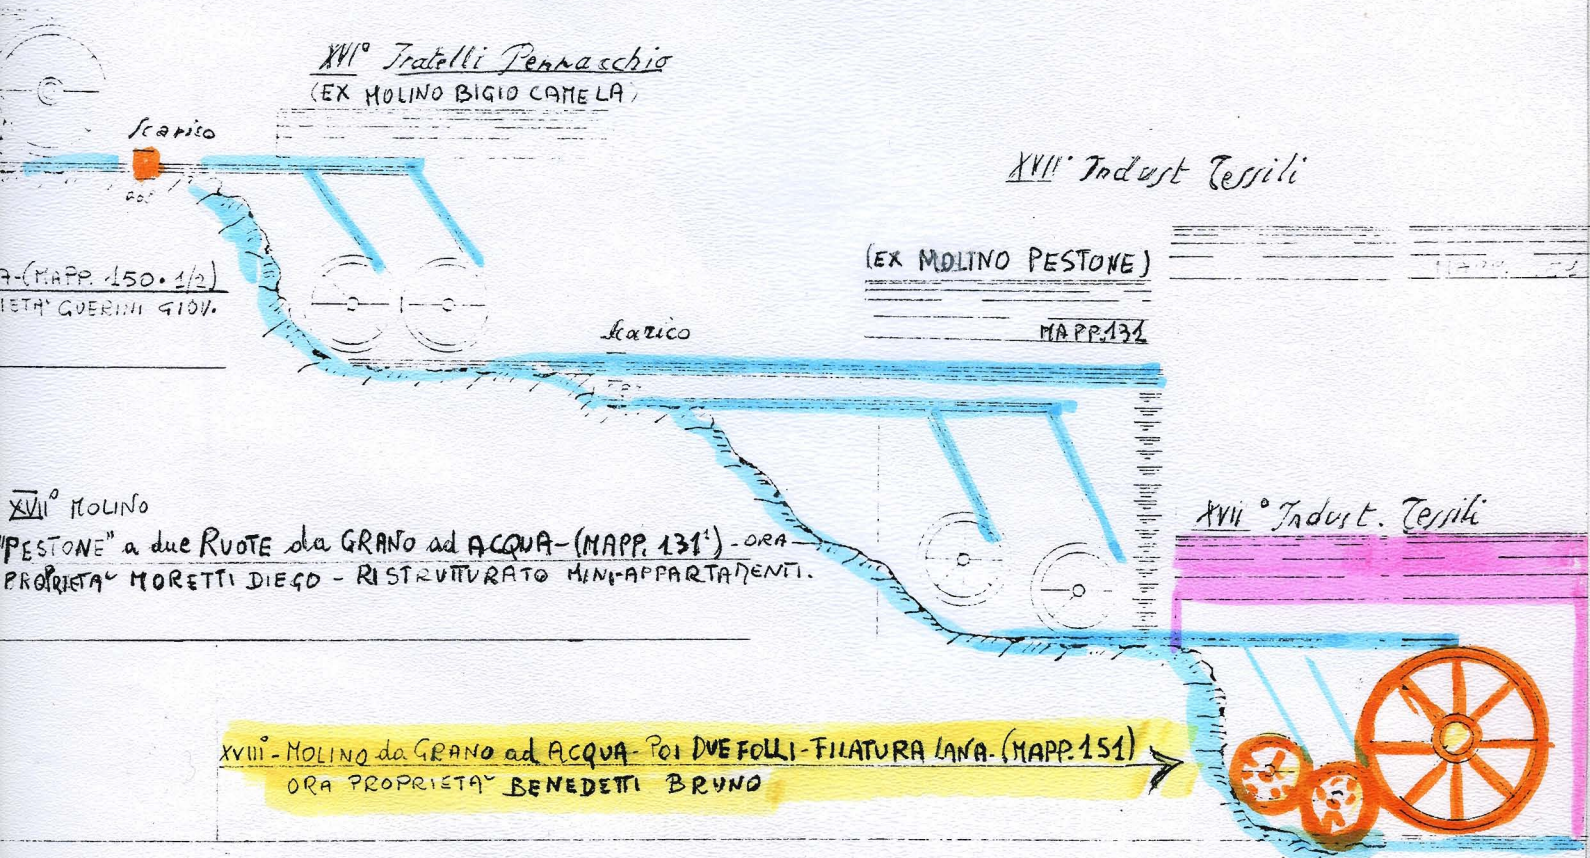 XVI° Fratelli Pennacchio
(EX MOLINO BIGIO CAMELA)
Scarico
XVII° Indust Tessili
(EX MOLINO PESTONE)
MAPP.131
-(MAPP. 150. 1/2)
GUERINI GIOV.
Scarico
XVII° MOLINO
"PESTONE" a due RUOTE da GRANO ad ACQUA-(MAPP. 131¹)-ORA
PROPRIETA' MORETTI DIEGO - RISTRUTTURATO MINI-APPARTAMENTI.
XVII° Indust. Tessili
XVIII°-MOLINO da GRANO ad ACQUA-POI DUE FOLLI-FILATURA LANA-(MAPP.151)
ORA PROPRIETA' BENEDETTI BRUNO